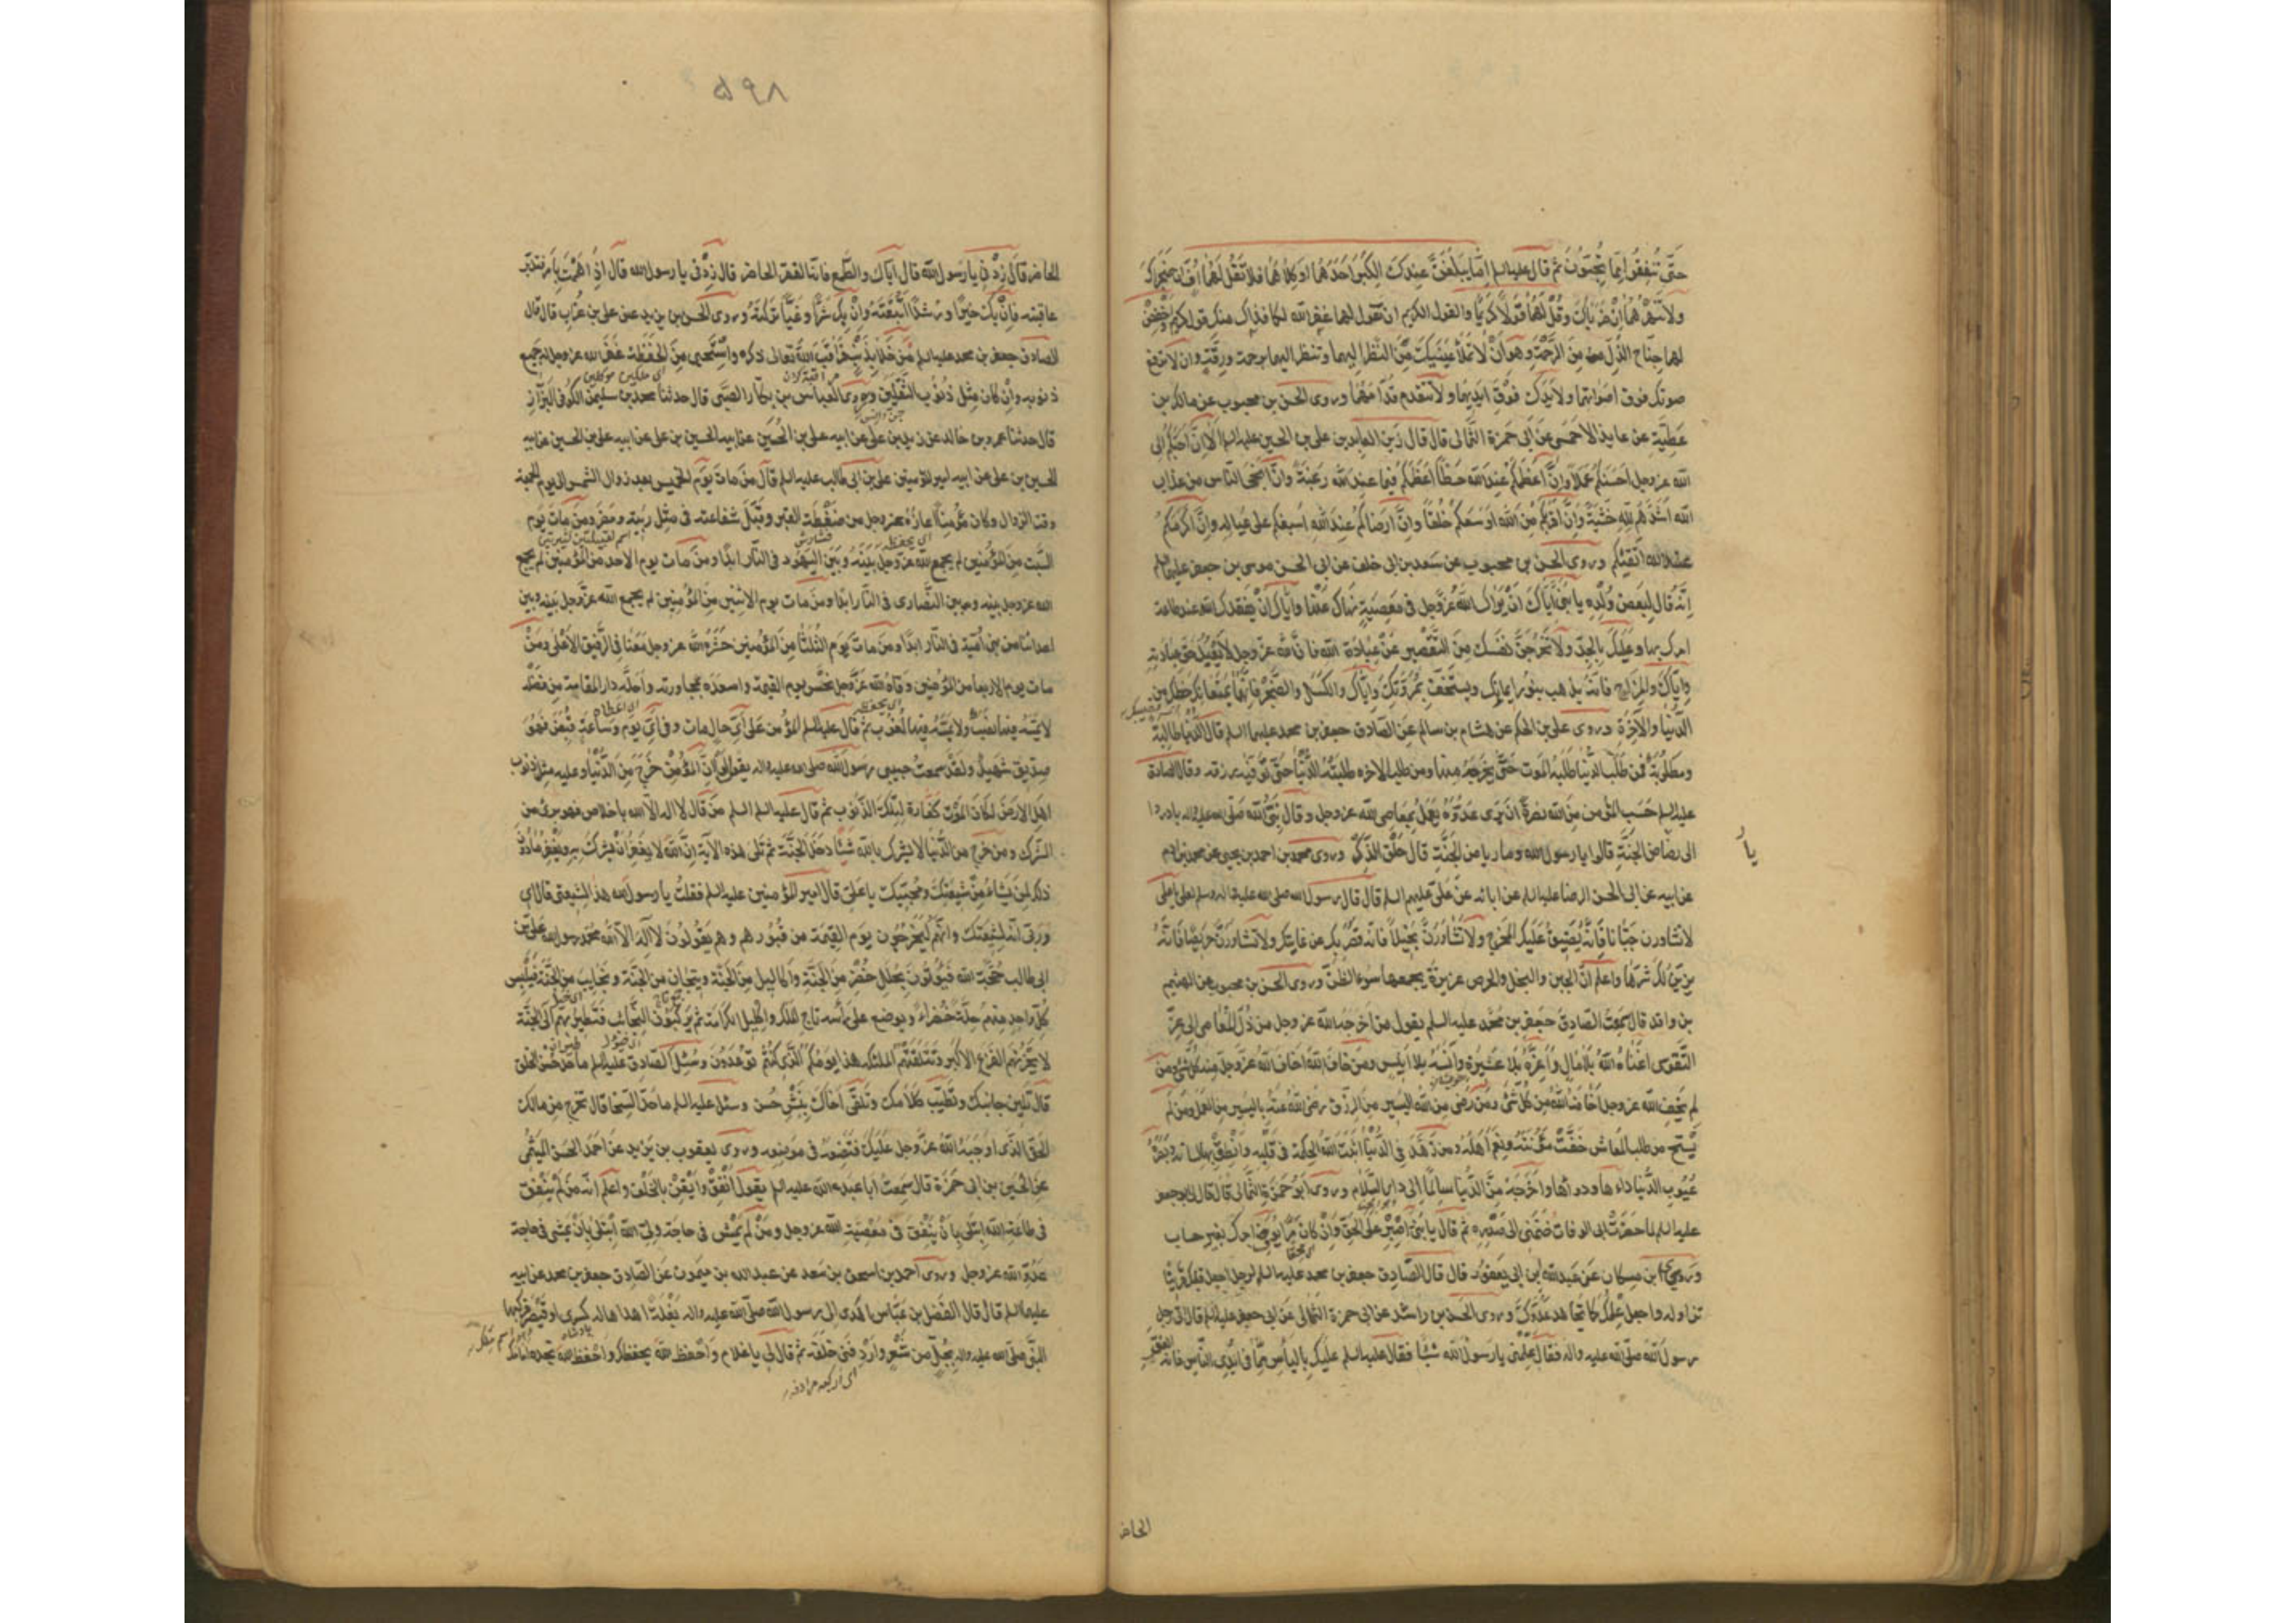 حتّى تنفقوا ممّا تحبّون ثم قال عليه السلم امّا يبلغنّ عندك الكبر احدهما او كلاهما فلا تقل لهما افّ ان اضجراك
ولا تنهرهما ان ضرباك وقل لهما قولا كريما والقول الكريم ان تقول لهما غفر الله لكما فذاك منك قول كريم واخفض
لهما جناح الذلّ من الرحمة وهو ان لا تملأ عينيك من النظر اليهما وتنظر اليهما برحمة ورقّة وان لا ترفع
صوتك فوق اصواتهما ولا يدك فوق ايديهما ولا تتقدم قدّامهما وروى الحسن بن محبوب عن مالك بن
عطيّة عن عايذ الاحمسى عن ابى حمزة الثمالى قال قال زين العابدين على بن الحسين عليهما السلم الا انّ احبّكم الى
الله عز وجل احسنكم عملا وانّ اعظمكم عند الله حظّا اعظمكم فيما عند الله رغبة وانّ انجى الناس من عذاب
الله اشدّهم لله خشية وانّ اقربكم من الله اوسعكم خلقا وانّ ارضاكم عند الله اسبغكم على عياله وانّ اكرمكم
عند الله اتقيكم وروى الحسن بن محبوب عن سعد بن ابى خلف عن ابى الحسن موسى بن جعفر عليهما السلم
انّه قال لبعض ولده يا بنىّ ايّاك ان يراك الله عزّ وجل فى معصية نهاك عنها وايّاك ان يفقدك الله عند طاعة
امرك بها وعليك بالجدّ ولا تخرجنّ نفسك من التقصير عن عبادة الله فانّ الله عزّ وجل لا يعبد حقّ عبادته
وايّاك والمزاح فانّه يذهب بنور ايمانك ويستخفّ بمروّتك وايّاك والكسل والضجر فانّهما يمنعانك حظّك من
الدنيا والآخرة وروى على بن الحكم عن هشام بن سالم عن الصادق جعفر بن محمد عليهما السلم قال الدنيا طالبة
ومطلوبة فمن طلب الدنيا طلبه الموت حتّى يخرجه منها ومن طلب الاخره طلبته الدنيا حتّى توفّيه رزقه وقال الصادق
عليه السلم حسب المؤمن من الله نصرة ان يرى عدوّه يعمل بمعاصى الله عز وجل وقال نبىّ الله صلّى الله عليه واله بادروا
الى رياض الجنّة قالوا يا رسول الله وما رياض الجنّة قال حلق الذكر وروى محمد بن احمد بن يحيى عن محمد بن ادم
عن ابيه عن ابى الحسن الرضا عليه السلم عن ابائه عن علىّ عليهم السلم قال قال رسول الله صلى الله عليه واله وسلم لعلى يا على
لا تشاورن جبانا فانّه يضيق عليك المخرج ولا تشاورنّ بخيلا فانّه يقصر بك عن غايتك ولا تشاورنّ حريصا فانّه
يزيّن لك شرّها واعلم انّ الجبن والبخل والحرص غريزة يجمعها سوء الظنّ وروى الحسن بن محبوب عن الهيثم
بن واقد قال سمعت الصادق جعفر بن محمد عليه السلم يقول من اخرجه الله عز وجل من ذلّ المعاصى الى عزّ
التقوى اغناه الله بلا مال واعزّه بلا عشيرة وآنسه بلا انيس ومن خاف الله اخاف الله عزّ وجل منه كلّ شىء ومن
لم يخف الله عز وجل اخافه الله من كلّ شىء ومن رضى من الله باليسير من الرزق رضى الله عنه باليسير من العمل ومن لم
يستح من طلب المعاش خفّت مؤنته ونعم اهله ومن زهد فى الدنيا اثبت الله الحكمة فى قلبه وانطق بها لسانه وبصّره
عيوب الدنيا داءها ودواءها واخرجه من الدنيا سالما الى دار السلام وروى ابو حمزة الثمالى قال قال لى ابو جعفر
عليه السلم لما حضرت ابى الوفات ضمّنى الى صدره ثم قال يا بنىّ اصبر على الحقّ وان كان مرّا يوفّ اجرك بغير حساب
وروى ابن مسكان عن عبد الله بن ابى يعفور قال قال الصادق جعفر بن محمد عليه السلم لرجل اجعل قلبك قرينا
تزاوله واجعل علمك كانها هد عدوّك وروى الحسن بن راشد عن ابى حمزة الثمالى عن ابى جعفر عليه السلم قال اتى رجل
رسول الله صلّى الله عليه واله فقال علّمنى يا رسول الله شيئا فقال عليه السلم عليك باليأس ممّا فى ايدى الناس فانه الغنى
الحاض
يا
۵۹۸
الحاضر قال زدنى يا رسول الله قال ايّاك والطمع فانّه الفقر الحاضر قال زدنى يا رسول الله قال اذا هممت بأمر فتدبّر
عاقبته فان يك خيرا ورشدا اتّبعته وان يك شرّا وغيّا تركته وروى الحسن بن يزيد عن على بن غراب قال قال
الصادق جعفر بن محمد عليه السلم من خلا بذنب فراقب الله تعالى ذكره واستحيى من الحفظة غفر الله عز وجل له جميع
ذنوبه وان كان مثل ذنوب الثقلين وروى العباس بن بكّار الضبّى قال حدثنا محمد بن سليمن الكوفى البزّاز
قال حدثنا عمرو بن خالد عن زيد بن على عن ابيه على بن الحسين عن ابيه الحسين بن على عن ابيه على بن الحسين عن ابيه
الحسين بن على عن ابيه امير المؤمنين على بن ابى طالب عليه السلم قال من مات يوم الخميس بعد زوال الشمس الى يوم الجمعة
وقت الزوال وكان مؤمنا اعاذه الله عز وجل من ضغطة القبر وقبل شفاعته فى مثل ربيعة ومضر ومن مات يوم
السبت من المؤمنين لم يجمع الله عزّ وجل بينه وبين اليهود فى النار ابدا ومن مات يوم الاحد من المؤمنين لم يجمع
الله عز وجل بينه وبين النصارى فى النار ابدا ومن مات يوم الاثنين من المؤمنين لم يجمع الله عزّ وجل بينه وبين
اعدائنا من بنى اميّة فى النار ابدا ومن مات يوم الثلثا من المؤمنين حشره الله عز وجل معنا فى الرفيق الاعلى ومن
مات يوم الاربعا من المؤمنين وقاه الله عزّ وجل نحس يوم القيمة واسعده بمجاورته واحلّه دار المقامة من فضله
لا يمسّه فيها نصب ولا يمسّه فيها لغوب ثم قال عليه السلم المؤمن على اىّ حال مات وفى اىّ يوم وساعة قبض فهو
صدّيق شهيد ولقد سمعت حبيبى رسول الله صلى الله عليه واله يقول لو انّ المؤمن خرج من الدنيا وعليه مثل ذنوب
اهل الارض لكان الموت كفّارة لتلك الذنوب ثم قال عليه السلم من قال لا اله الا الله باخلاص فهو برىء من
الشرك ومن خرج من الدنيا لا يشرك بالله شيئا دخل الجنّة ثم تلى هذه الآية انّ الله لا يغفر ان يشرك به ويغفر ما دون
ذلك لمن يشاء من شيعتك ومحبّيك يا علىّ قال امير المؤمنين عليه السلم فقلت يا رسول الله هذا لشيعتى قال اى
وربّى انّه لشيعتك وانّهم ليخرجون يوم القيمة من قبورهم وهم يقولون لا اله الا الله محمد رسول الله علىّ بن
ابى طالب حجّة الله فيؤتون بحلل خضر من الجنّة واكاليل من الجنّة وتيجان من الجنّة ونجايب من الجنّة فيلبس
كلّ واحد منهم حلّة خضراء ويوضع على رأسه تاج الملك واكليل الكرامة ثم يركبون النجائب فتطير بهم الى الجنّة
لا يحزنهم الفزع الاكبر وتتلقّيهم الملئكة هذا يومكم الذى كنتم توعدون وسئل الصادق عليه السلم ما حدّ حسن الخلق
قال تلين جانبك وتطيّب كلامك وتلقى اخاك ببشر حسن وسئل عليه السلم ما حدّ السخا قال تخرج من مالك
الحقّ الذى اوجبه الله عزّ وجل عليك فتضعه فى موضعه وروى يعقوب بن يزيد عن احمد الحسن الميثمى
عن الحسين بن ابى حمزة قال سمعت ابا عبد الله عليه السلم يقول انفق وايقن بالخلف واعلم انّه من لم ينفق
فى طاعة الله ابتلى بان ينفق فى معصية الله عز وجل ومن لم يمش فى حاجة ولىّ الله ابتلى بان يمشى فى حاجة
عدوّ الله عز وجل وروى احمد بن اسحق بن سعد عن عبد الله بن ميمون عن الصادق جعفر بن محمد عن ابيه
عليهما السلم قال قال الفضل بن عبّاس اهدى الى رسول الله صلّى الله عليه واله بغلة اهداها له كسرى او قيصر فركبها
النبى صلّى الله عليه واله بجلّ من شعر واردفنى خلفه ثم قال لى يا غلام احفظ الله يحفظك واحفظ الله تجده امامك